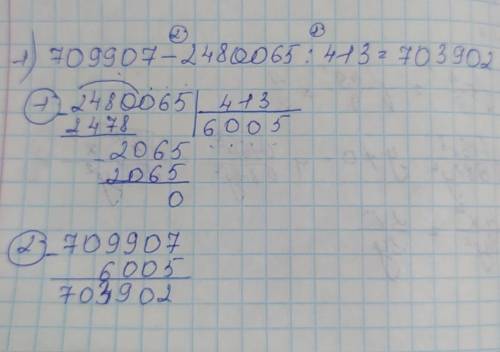 ② ①
1) 709907 - 2480065 : 413 = 703902
① - 2480065 | 413
2478 6005
- 2065
2065
0
② - 709907
6005
703902